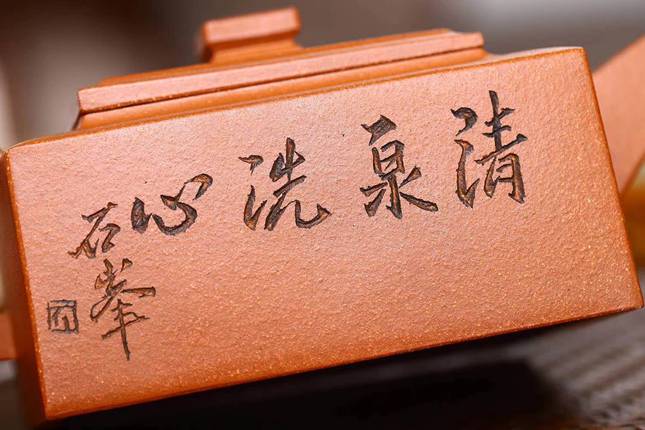 清泉洗心
石峯